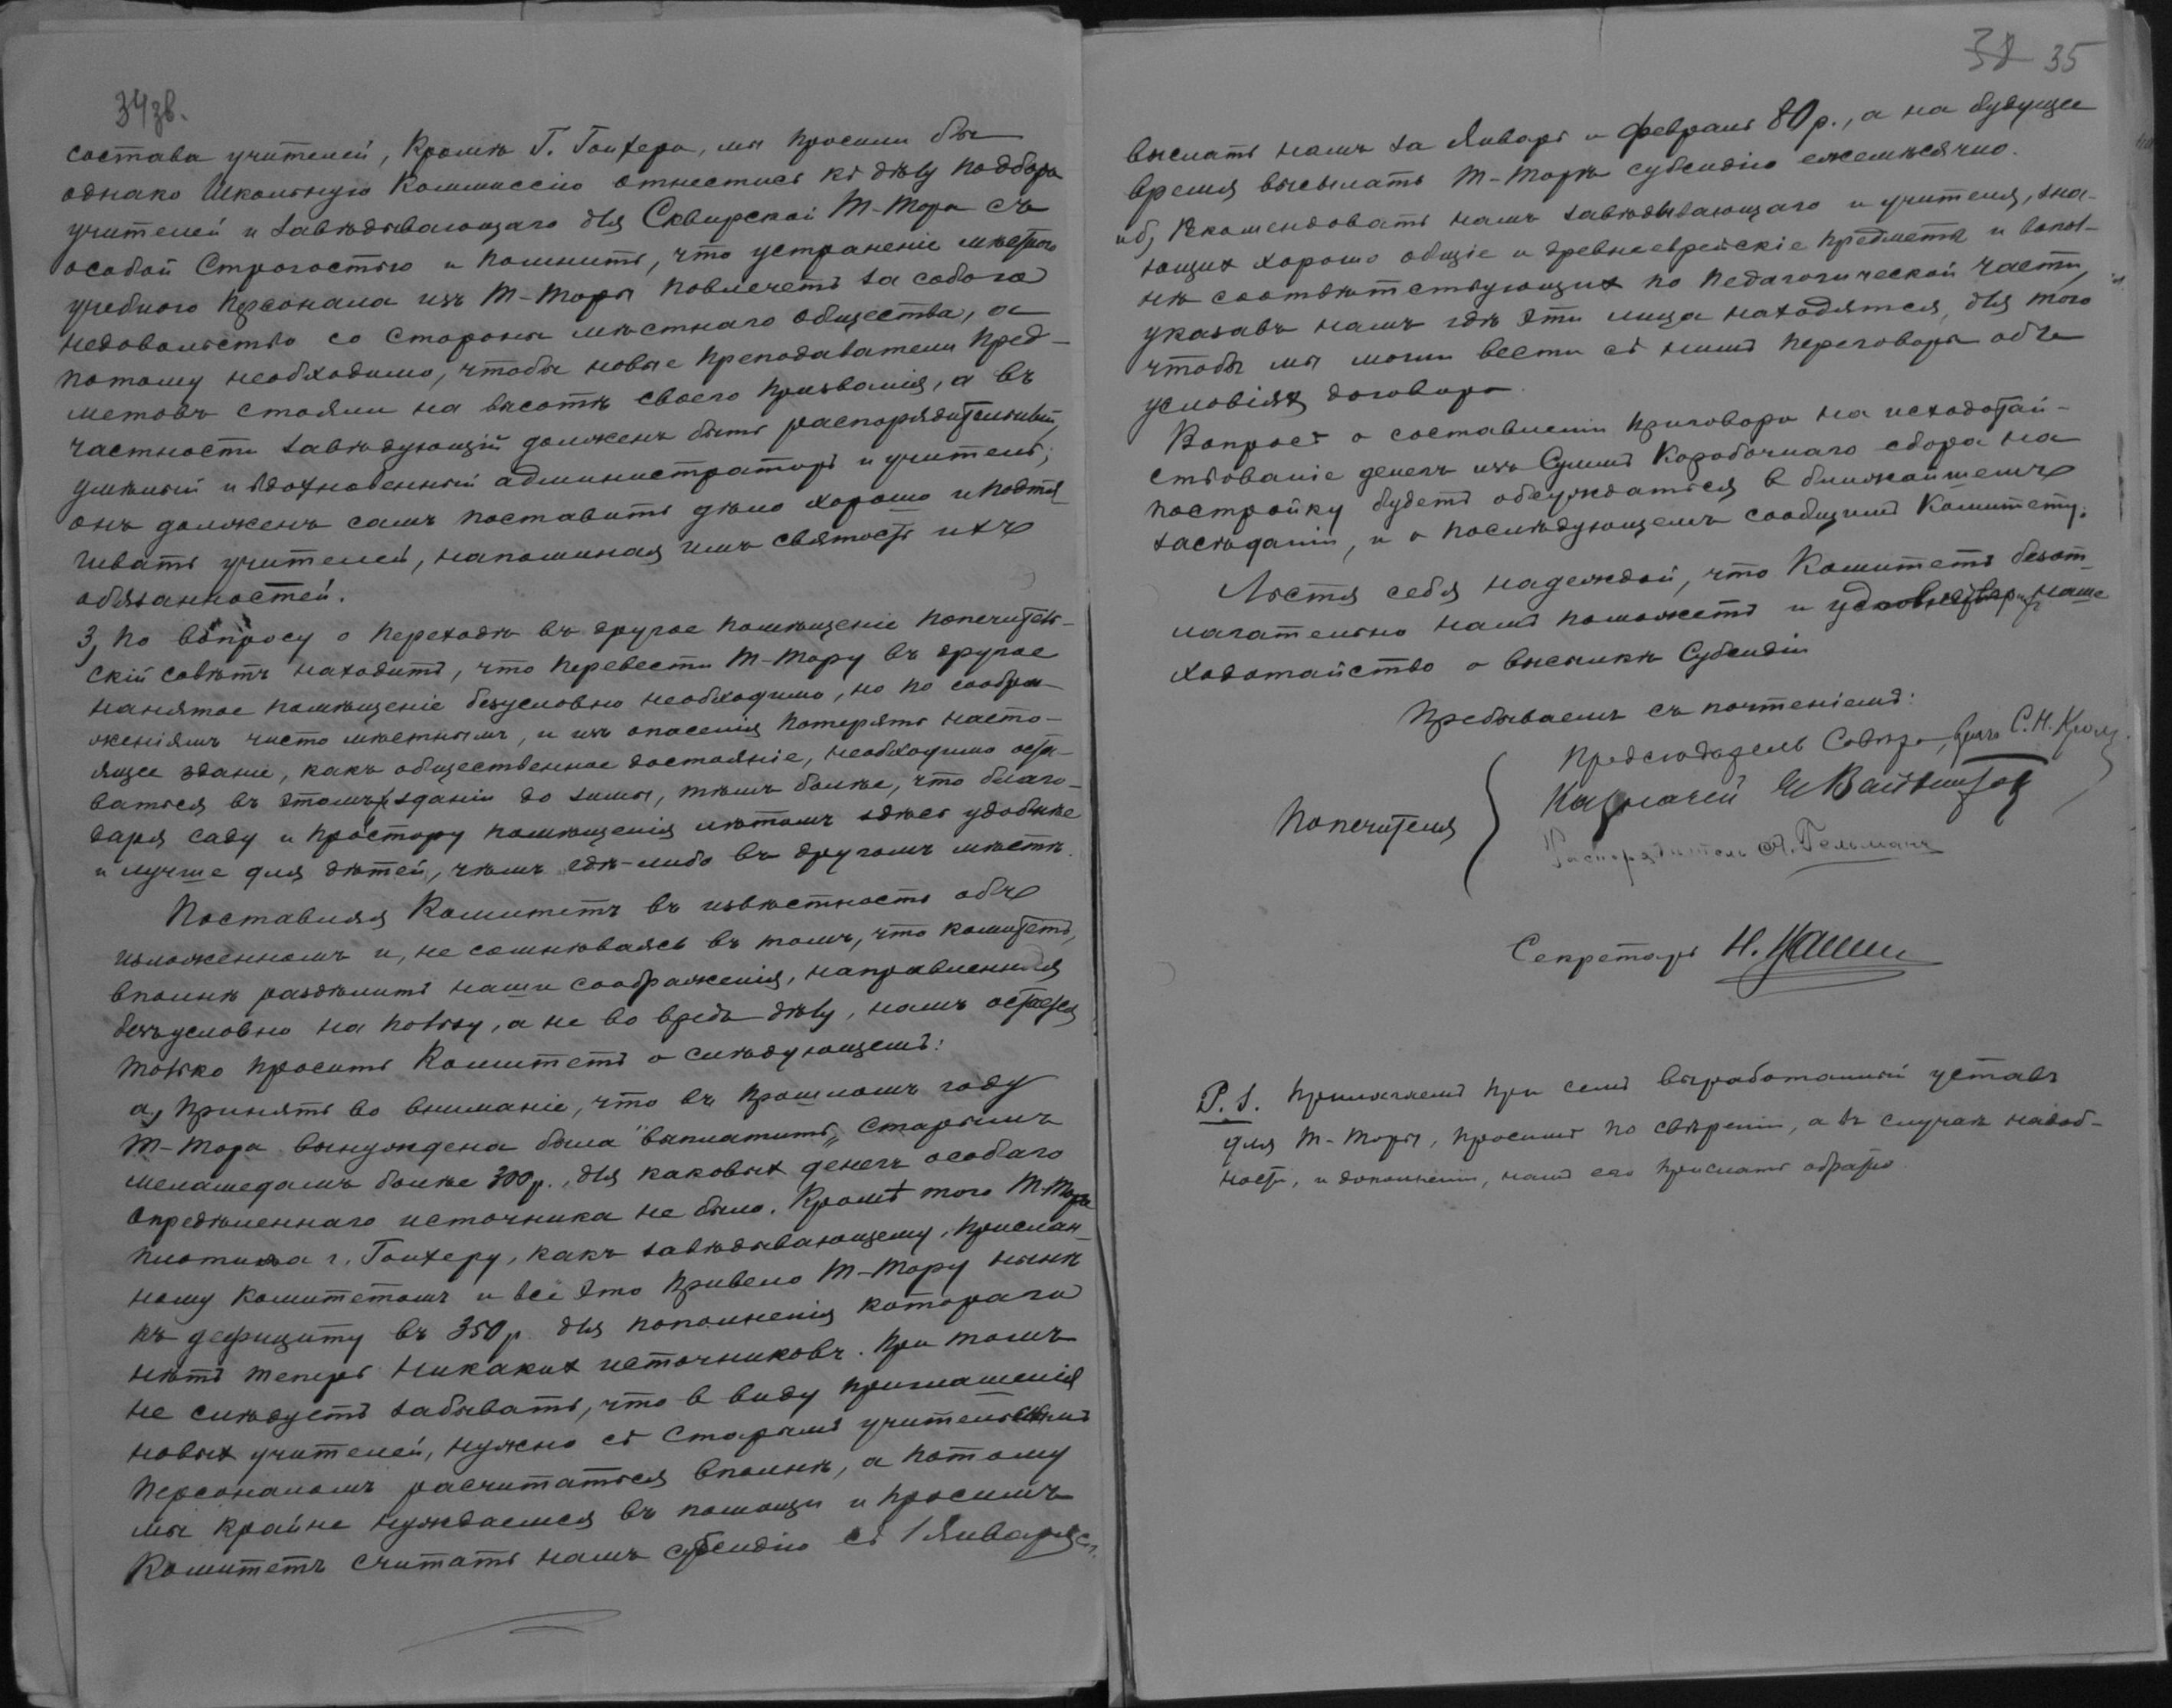 34зв.
состава учителей, кромѣ Г. Гойхера, мы просили бы
однако Школьную Коммиссію отнестись къ дѣлу подбора
учителей и завѣдывающаго для Сквирской Т-Тора съ
особой строгостью и помнить, что устраненіе мѣстнаго
учебного персонала изъ Т-Торы повлечетъ за собою
недовольство со стороны мѣстнаго общества, а
потому необходимо, чтобы новые преподаватели пред-
метовъ стояли на высотѣ своего призванія, а въ
частности завѣдующій долженъ быть распорядительный,
умѣлый и вдохновенный администраторъ и учитель;
онъ долженъ самъ поставить дѣло хорошо и подтя-
гивать учителей, напоминая имъ святость ихъ
обязанностей.
3, По вопросу о переходѣ въ другое помѣщеніе попечитель-
скій совѣтъ находитъ, что перевести Т-Тору въ другое
нанятое помѣщеніе безусловно необходимо, но по сообра-
женіямъ чисто мѣстнымъ, и изъ опасенія потерять насто-
ящее зданіе, какъ общественное достояніе, необходимо оста-
ваться въ этомъ зданіи до зимы, тѣмъ болѣе, что благо-
даря саду и простору помѣщенія лѣтомъ здѣсь удобнѣе
и лучше для дѣтей, чѣмъ гдѣ-либо въ другомъ мѣстѣ.
Поставляя Комитетъ въ извѣстность объ
изложенномъ и, не сомнѣваясь въ томъ, что комитетъ,
вполнѣ раздѣлитъ наши соображенія, направленныя
безъусловно на пользу, а не во вредъ дѣлу, намъ остается
только просить Комитетъ о слѣдующемъ:
а, Принять во вниманіе, что въ прошломъ году
Т-Тора вынуждена была "выплатить" старымъ
меламедамъ болѣе 300 р., для каковыхъ денегъ особаго
опредѣленнаго источника не было. Кромѣ того Т-Тора
платила г. Гойхеру, какъ завѣдывающему, прислан-
ному комитетомъ и всё это привело Т-Тору нынѣ
къ дефициту въ 350 р. для пополненія котораго
нѣтъ теперь никакихъ источниковъ. При томъ
не слѣдуетъ забывать, что в виду приглашенія
новыхъ учителей, нужно съ старымъ учительскимъ
персоналомъ расчитаться вполнѣ, а потому
мы крайне нуждаемся въ помощи и просимъ
Комитетъ считать намъ субсидію съ 1 Января с.г.
38 35
выслать намъ за Январь и февраль 80 р., а на будущее
время высылать Т-Торѣ субсидію ежемѣсячно.
и б, Рекомендовать намъ завѣдывающаго и учителя, зна-
ющихъ хорошо общіе и древнееврейскіе предметы и впол-
нѣ соотвѣтствующихъ по педагогической части,
указавъ намъ гдѣ эти лица находятся, для того
чтобы мы могли вести съ ними переговоры объ
условіяхъ договора.
Вопросъ о составленіи приговора на исходатай-
ствованіе денегъ изъ суммъ Коробочнаго сбора на
постройку будетъ обсуждаться в ближайшемъ
засѣданіи, и о послѣдующемъ сообщимъ Комитету.
Льстя себя надеждой, что Комитетъ безот-
лагательно намъ поможетъ и удовлетворитъ наше
ходотайство о высылкѣ субсидіи
Пребываемъ съ почтеніемъ:
Предсѣдатель Совѣта, врачъ С. Н. Кролъ
Попечителя Казначей Вайншток
Распорядитель А. Гельманъ
Секретарь Н.
P. S. Прилагаемъ при семъ выработанный уставъ
для Т-Торы, просимъ по свѣреніи, а въ случаѣ надоб-
ности, и дополненіи, намъ его прислать обратно.